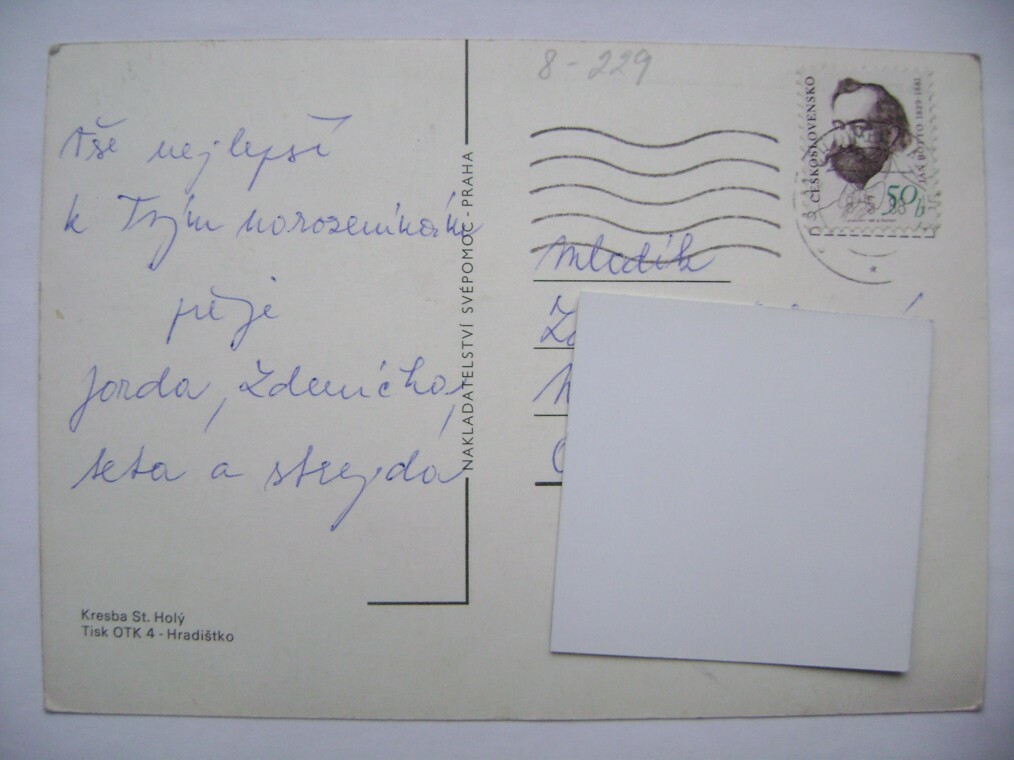 8-229
Vše nejlepší
k Tvým narozeninám
přeje
Jarda, Zdenička,
teta a strejda
Kresba St. Holý
Tisk OTK 4 - Hradištko
NAKLADATELSTVÍ SVÉPOMOC - PRAHA
ČESKOSLOVENSKO
JAN BOTTO 1829-1881
50h
Mladík